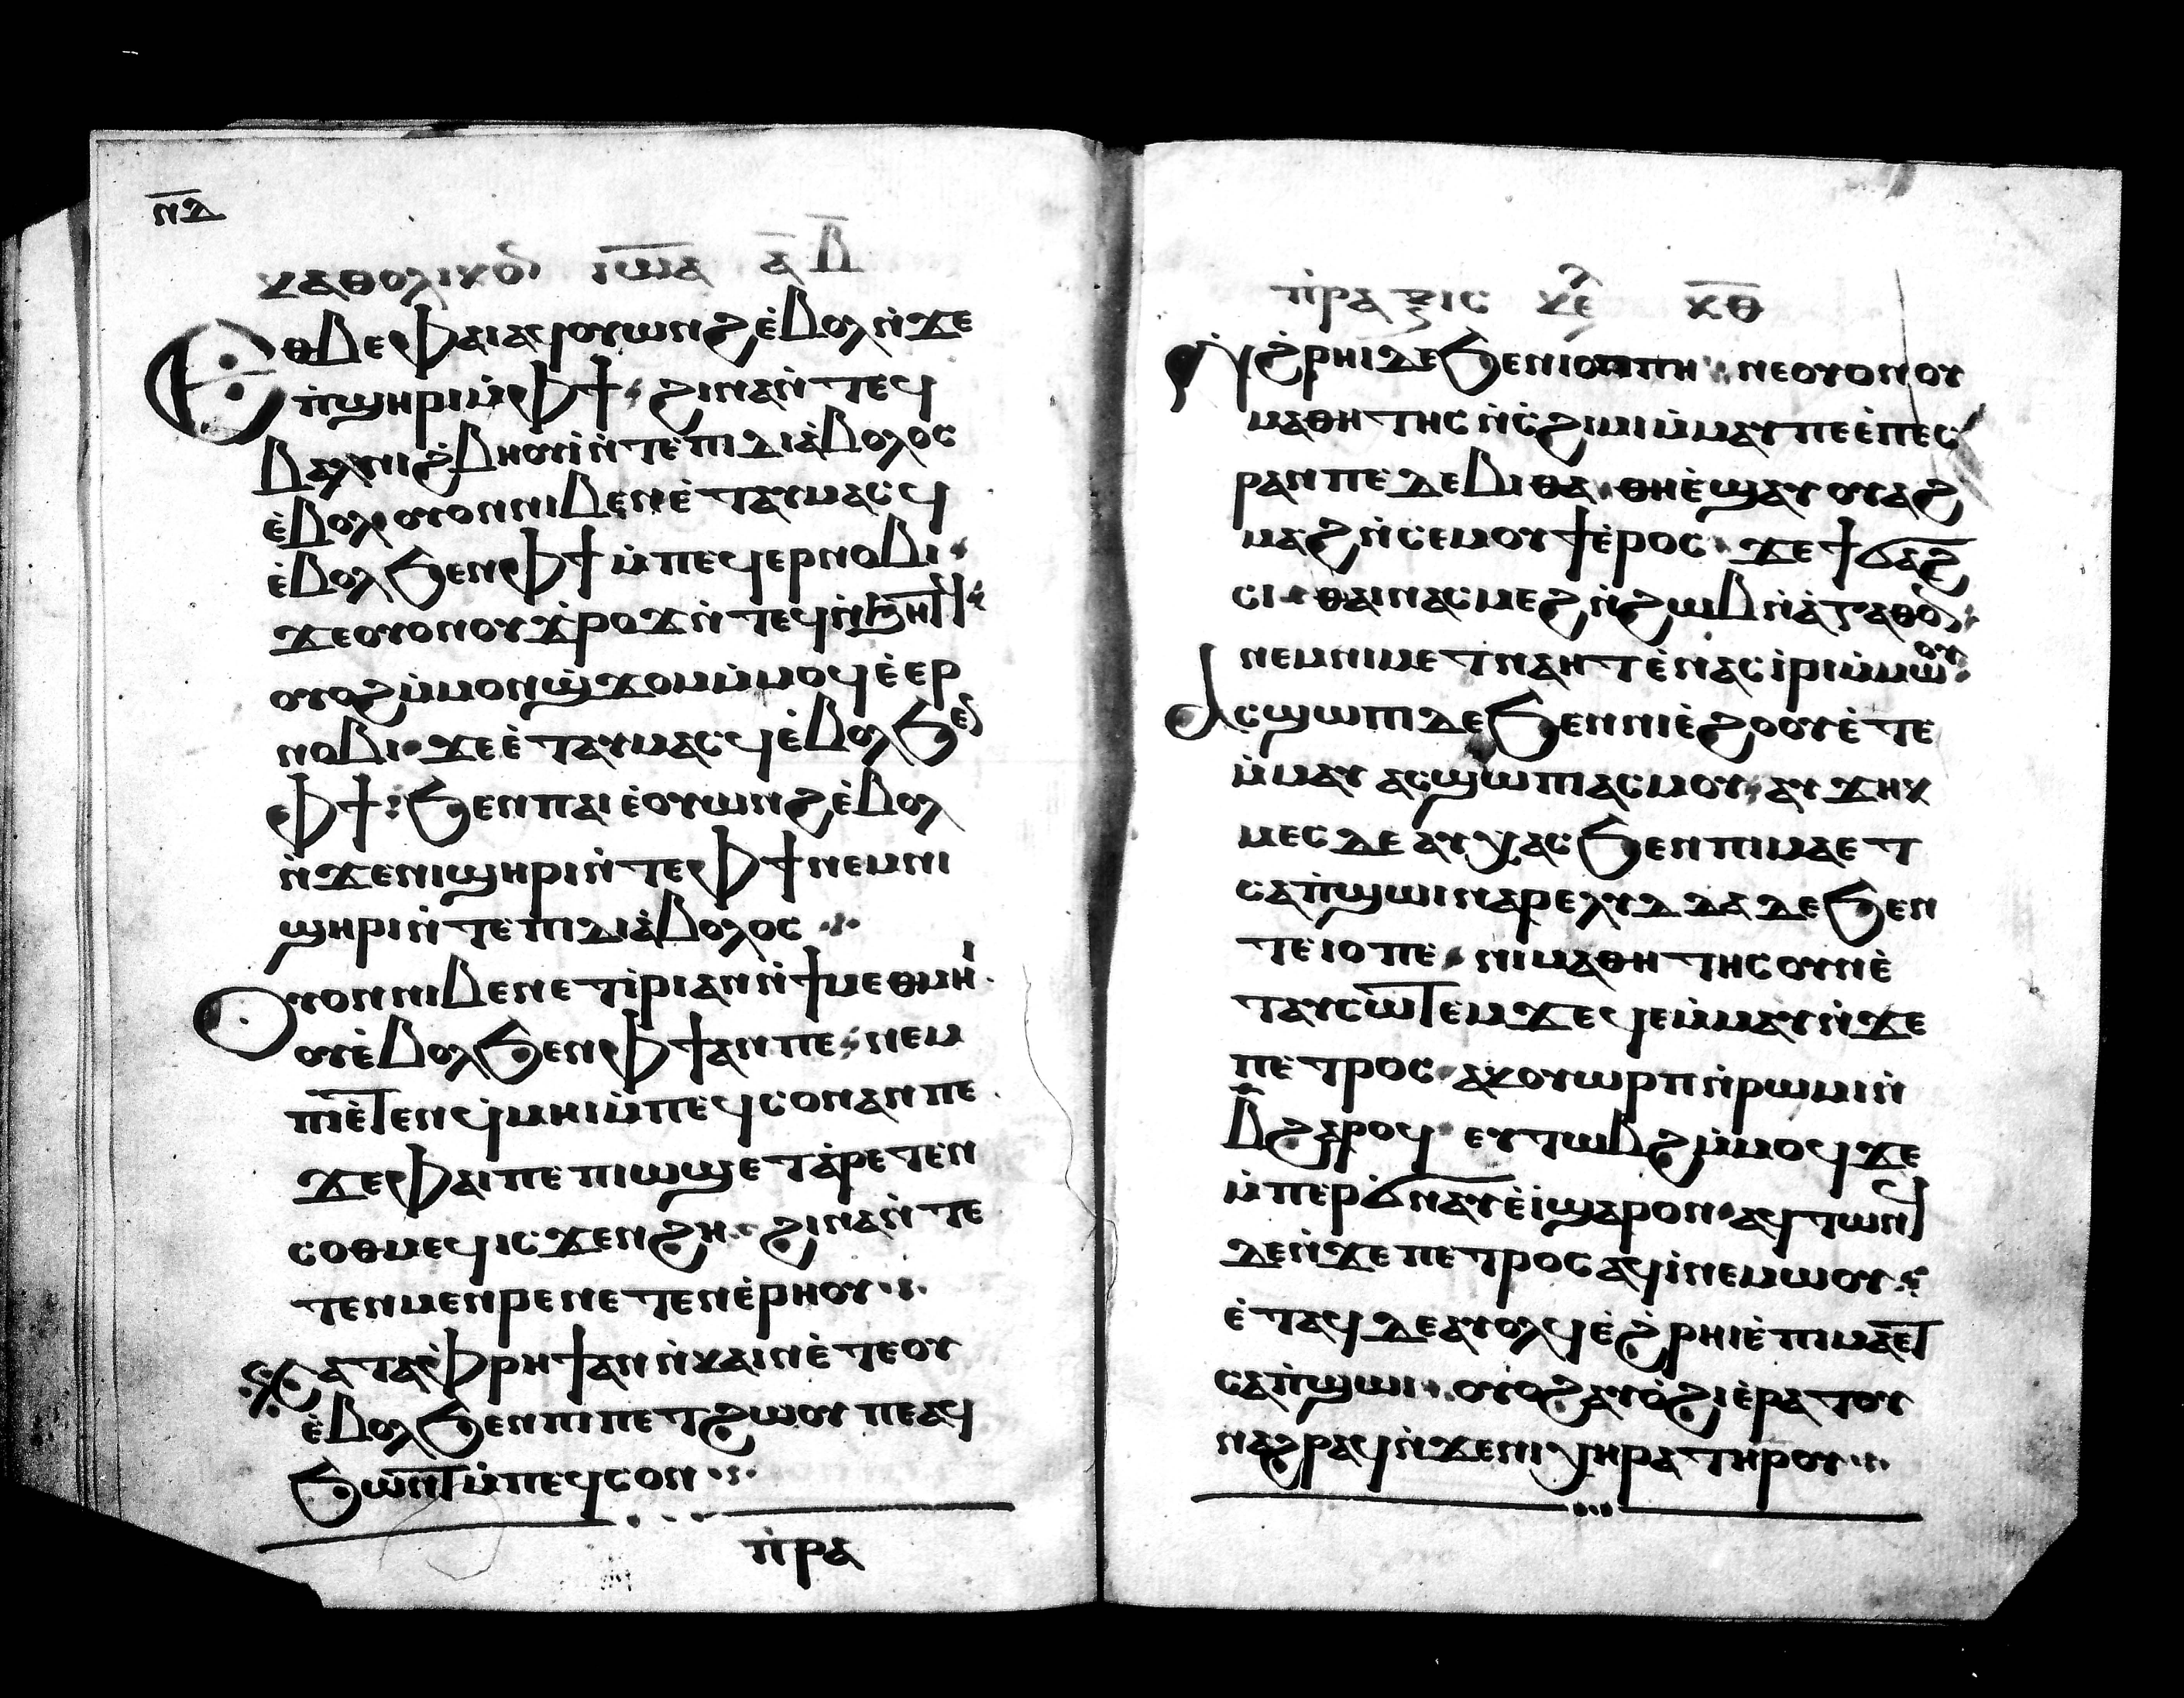 ⲛ̅ⲇ̅
ⲕⲁⲑⲟⲗⲓⲕⲟⲛ ⲓⲱ̅ⲁ ⲁ̅ ⲃ̅
Ⲉⲑⲃⲉ ⲫⲁⲓ ⲁϥⲟⲩⲱⲛϩ ⲉ̀ⲃⲟⲗ ⲛ̀ϫⲉ
ⲡ̀ϣⲏⲣⲓ ⲙ̀ⲫϯ· ϩⲓⲛⲁ ⲛ̀ⲧⲉϥ
ⲃⲱⲗ ⲛⲓϩ̀ⲃⲏⲟⲩⲓ̀ ⲛ̀ⲧⲉ ⲡⲓⲇⲓⲁ̀ⲃⲟⲗⲟⲥ
ⲉ̀ⲃⲟⲗ ⲟⲩⲟⲛ ⲛⲓⲃⲉⲛ ⲉ̀ⲧⲁⲩⲙⲁⲥϥ
ⲉ̀ⲃⲟⲗ ϧⲉⲛ ⲫϯ ⲙ̀ⲡⲉϥⲉⲣⲛⲟⲃⲓ·
ϫⲉ ⲟⲩⲟⲛ ⲟⲩϫ̀ⲣⲟϫ ⲛ̀ⲧⲉϥ ⲛ̀ϧⲏⲧϥ·
ⲟⲩⲟϩ ⲙ̀ⲙⲟⲛ ϣ̀ϫⲟⲙ ⲙ̀ⲙⲟϥ ⲉ̀ⲉⲣ
ⲛⲟⲃⲓ· ϫⲉ ⲉ̀ⲧⲁⲩⲙⲁⲥϥ ⲉ̀ⲃⲟⲗ ϧⲉⲛ
ⲫϯ: ϧⲉⲛ ⲡⲁⲓ ⲉ̀ⲟⲩⲱⲛϩ ⲉ̀ⲃⲟⲗ
ⲛ̀ϫⲉ ⲛⲓϣⲏⲣⲓ ⲛ̀ⲧⲉ ⲫϯ ⲛⲉⲙ ⲛⲓ
ϣⲏⲣⲓ ⲛ̀ⲧⲉ ⲡⲓⲇⲓⲁ̀ⲃⲟⲗⲟⲥ ·:·
Ⲟⲩⲟⲛ ⲛⲓⲃⲉⲛ ⲉⲛⲉⲧⲓ̀ⲣⲓ ⲁⲛ ⲛ̀ϯⲙⲉⲑⲙⲏⲓ·
ⲟⲩⲉ̀ⲃⲟⲗ ϧⲉⲛ ⲫϯ ⲁⲛ ⲡⲉ· ⲛⲉⲙ
ⲡⲓⲉ̀ⲧⲉⲛϥ̀ⲙⲏⲓ ⲙ̀ⲡⲉϥⲥⲟⲛ ⲁⲛ ⲡⲉ
ϫⲉ ⲫⲁⲓ ⲡⲉ ⲡⲓⲱϣ ⲉⲧⲁ̀ⲣⲉⲧⲉⲛ
ⲥⲟⲑⲙⲉϥ ⲓⲥϫⲉⲛ ϩⲏ· ϩⲓⲛⲁ ⲛ̀ⲧⲉ
ⲧⲉⲛⲙⲉⲛⲣⲉ ⲛⲉⲧⲉⲛⲉ̀ⲣⲏⲟⲩ·:·
Ⲕⲁⲧⲁ ⲫ̀ⲣⲏϯ ⲁⲛ ⲛ̀ⲕⲁⲓⲛ ⲉ̀ⲧⲉ ⲟⲩ
ⲉ̀ⲃⲟⲗ ϧⲉⲛ ⲡⲓⲡⲉⲧϩⲱⲟⲩ ⲡⲉ ⲁϥ
ϧⲱⲧⲉⲃ ⲙ̀ⲡⲉϥⲥⲟⲛ·:·
ⲡ̀ⲣⲁ
ⲡ̀ⲣⲁⲝⲓⲥ ⲕⲉ ⲕ̅ⲑ̅
Ⲛϩ̀ⲣⲏⲓ ⲇⲉ ϧⲉⲛ ⲓⲟⲡⲡⲏ· ⲛⲉ ⲟⲩⲟⲛ ⲟⲩ
ⲙⲁⲑⲏⲧⲏⲥ ⲛ̀ⲥ̀ϩⲓⲙⲓ ⲙ̀ⲙⲁⲩ ⲡⲉ ⲉ̀ⲡⲉⲥ
ⲣⲁⲛ ⲡⲉ ⲇⲉⲃⲓⲑⲁ· ⲑⲏ ⲉ̀ϣⲁⲩⲟⲩⲁϩ
ⲙⲁϩ ⲛ̀ⲥⲉⲙⲟⲩϯ ⲉ̀ⲣⲟⲥ· ϫⲉ ϯϭⲁϩ
ⲥⲓ· ⲑⲁⲓ ⲛⲁⲥⲙⲉϩ ⲛ̀ϩⲱⲃ ⲛ̀ⲁ̀ⲅⲁⲑⲟⲛ·
ⲛⲉⲙ ⲛⲓⲙⲉⲧⲛⲁⲏⲧ ⲉ̀ⲛⲁⲥⲓ̀ⲣⲓ ⲙ̀ⲙⲱⲟⲩ·
Ⲁⲥϣⲱⲡⲓ ⲇⲉ ϧⲉⲛ ⲛⲓⲉ̀ϩⲟⲟⲩ ⲉ̀ⲧⲉ
ⲙ̀ⲙⲁⲩ ⲁⲥϣⲱⲡⲓ ⲁⲥⲙⲟⲩ· ⲁⲩϫⲏⲕ
ⲙⲉⲥ ⲇⲉ ⲁⲩⲭⲁⲥ ϧⲉⲛ ⲡⲓⲙⲁ ⲉⲧ
ⲥⲁⲡ̀ϣⲱⲓ ⲛⲁⲣⲉ ⲗⲩⲇⲇⲁ ⲇⲉ ϧⲉⲛ
ⲧⲉ ⲓⲟⲡⲉ· ⲛⲓⲙⲁⲑⲏⲧⲏⲥ ⲟⲩⲛ ⲉ̀
ⲧⲁⲩⲥⲱⲧⲉⲙ ϫⲉ ϥⲉⲙ̀ⲙⲁⲩ ⲛ̀ϫⲉ
ⲡⲉⲧⲣⲟⲥ· ⲁⲩⲟⲩⲱⲣⲡ ⲛ̀ⲣⲱⲙⲓ ⲛ̀
ⲃ̅ ϩⲁⲣⲟϥ· ⲉⲩⲧⲱⲃϩ ⲙ̀ⲙⲟϥ ϫⲉ
ⲙ̀ⲡⲉⲣϭⲛⲁⲩ ⲉ̀ⲓ̀ ϣⲁⲣⲟⲛ· ⲁϥⲧⲱⲛϥ
ⲇⲉ ⲛ̀ϫⲉ ⲡⲉⲧⲣⲟⲥ ⲁϥⲓ̀ ⲛⲉⲙⲱⲟⲩ·:
ⲉ̀ⲧⲁϥ ⲇⲉ ⲁⲩⲟⲗϥ ⲉ̀ϩ̀ⲣⲏⲓ ⲉ̀ⲡⲓⲙⲁ ⲉⲧ
ⲥⲁⲡ̀ϣⲱⲓ·. ⲟⲩⲟϩ ⲁⲩⲟ̀ϩⲓ ⲉ̀ⲣⲁⲧⲟⲩ
ⲛⲁϩⲣⲁϥ ⲛ̀ϫⲉ ⲛⲓⲭⲏⲣⲁ ⲧⲏⲣⲟⲩ·:·